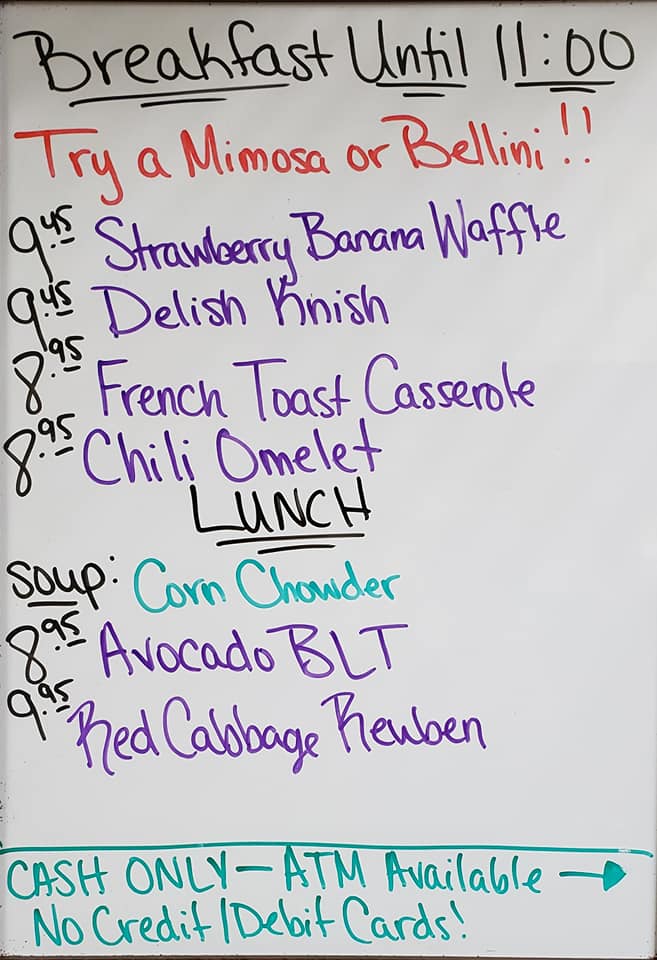 Breakfast Until 11:00
Try a Mimosa or Bellini!!
9.45 Strawberry Banana Waffle
9.45 Delish Knish
8.95 French Toast Casserole
8.95 Chili Omelet
LUNCH
soup: Corn Chowder
8.95 Avocado BLT
9.95 Red Cabbage Reuben
CASH ONLY - ATM Available →
No Credit/Debit Cards!